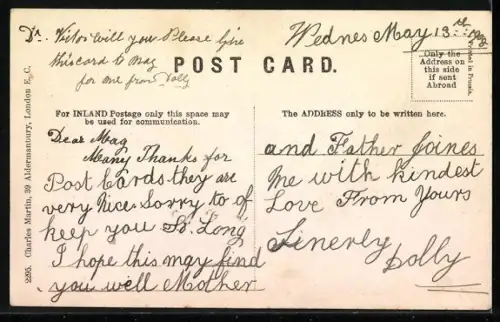 Dr. Victor will you Please Give
this card to Mag
for me from Dolly
Wednes May 13th
POST CARD.
Only the
Address on
this side
if sent
Abroad
Printed in Prussia.
For INLAND Postage only this space may
be used for communication.
The ADDRESS only to be written here.
2295. Charles Martin, 39 Aldermanbury, London E.C.
Dear Mag
Many Thanks for
Post Cards they are
very Nice Sorry to of
keep you So Long
I hope this may find
you well Mother
and Father Joines
Me with kindest
Love From Yours
Sinerly
Dolly